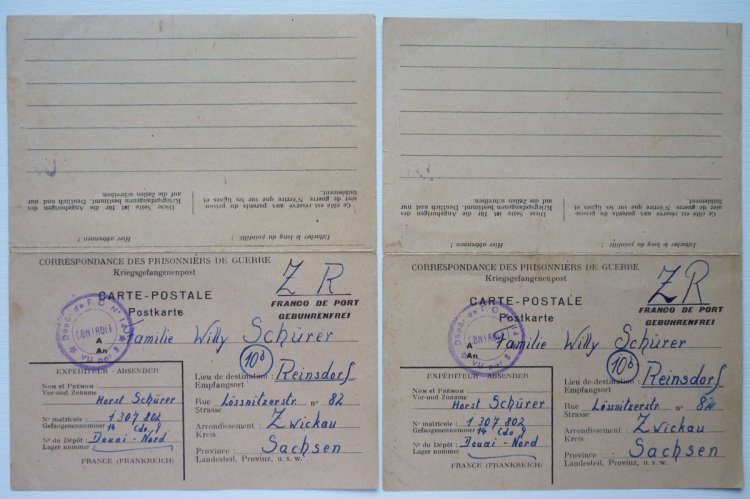 Ce côté est réservé aux parents du prison-
nier de guerre. N'écrire que sur les lignes et
lisiblement.
Diese Seite ist für die Angehörigen des
Kriegsgefangenen bestimmt. Deutlich und nur
auf die Zeilen schreiben
Détacher le long du pointillé !
Hier abtrennen !
CORRESPONDANCE DES PRISONNIERS DE GUERRE
Kriegsgefangenenpost
Z R
CARTE-POSTALE
Postkarte
FRANCO DE PORT
GEBUHRENFREI
Dépôt de P. G. N°
CONTROLE
A
An
Familie Willy Schürer
10b
EXPÉDITEUR - ABSENDER
Nom et Prénom :
Vor-und Zuname
Horst Schürer
N° matricule :
Gefangenennummer
1307 802
14 Cdo. 9
N° du Dépôt :
Lager nummer
Douai - Nord
FRANCE (FRANKREICH)
Lieu de destination :
Empfangsort
Reinsdorf
Rue
Strasse
Lössnitzerstr. n° 82
Arrondissement :
Kreis
Zwickau
Province :
Landesteil, Provinz, u. s. w.
Sachsen
Ce côté est réservé aux parents du prison-
nier de guerre. N'écrire que sur les lignes et
lisiblement.
Diese Seite ist für die Angehörigen des
Kriegsgefangenen bestimmt. Deutlich und nur
auf die Zeilen schreiben
Détacher le long du pointillé !
Hier abtrennen !
CORRESPONDANCE DES PRISONNIERS DE GUERRE
Kriegsgefangenenpost
Z R
CARTE-POSTALE
Postkarte
FRANCO DE PORT
GEBUHRENFREI
CONTROLE
A
An
Familie Willy Schürer
10b
EXPÉDITEUR - ABSENDER
Nom et Prénom :
Vor-und Zuname
Horst Schürer
N° matricule :
Gefangenennummer
1307 802
14 Cdo. 9
N° du Dépôt :
Lager nummer
Douai - Nord
FRANCE (FRANKREICH)
Lieu de destination :
Empfangsort
Reinsdorf
Rue
Strasse
Lössnitzerstr. n° 82
Arrondissement :
Kreis
Zwickau
Province :
Landesteil, Provinz, u. s. w.
Sachsen